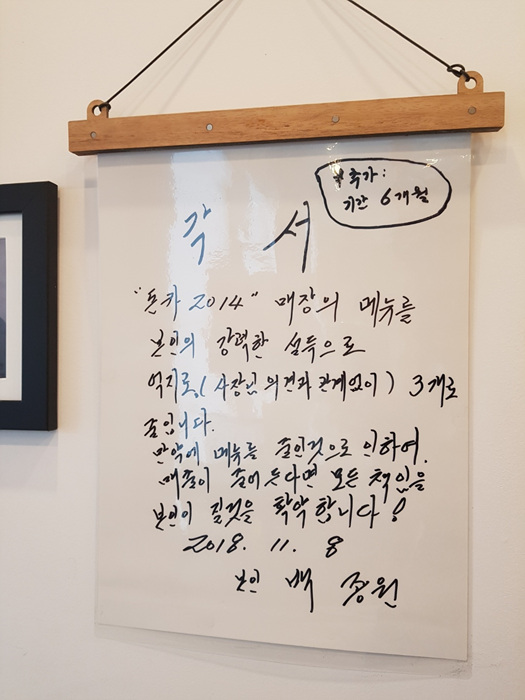 *추가:
기간 6개월
각 서
"돈카 2014" 매장의 메뉴를
본인의 강력한 설득으로
억지로,(사장님 의견과 관계없이) 3개로
줄입니다.
만약에 메뉴를 줄인것으로 인하여,
매출이 줄어든다면 모든 책임을
본인이 질것을 확약합니다!
2018. 11. 8
본인 백 종원